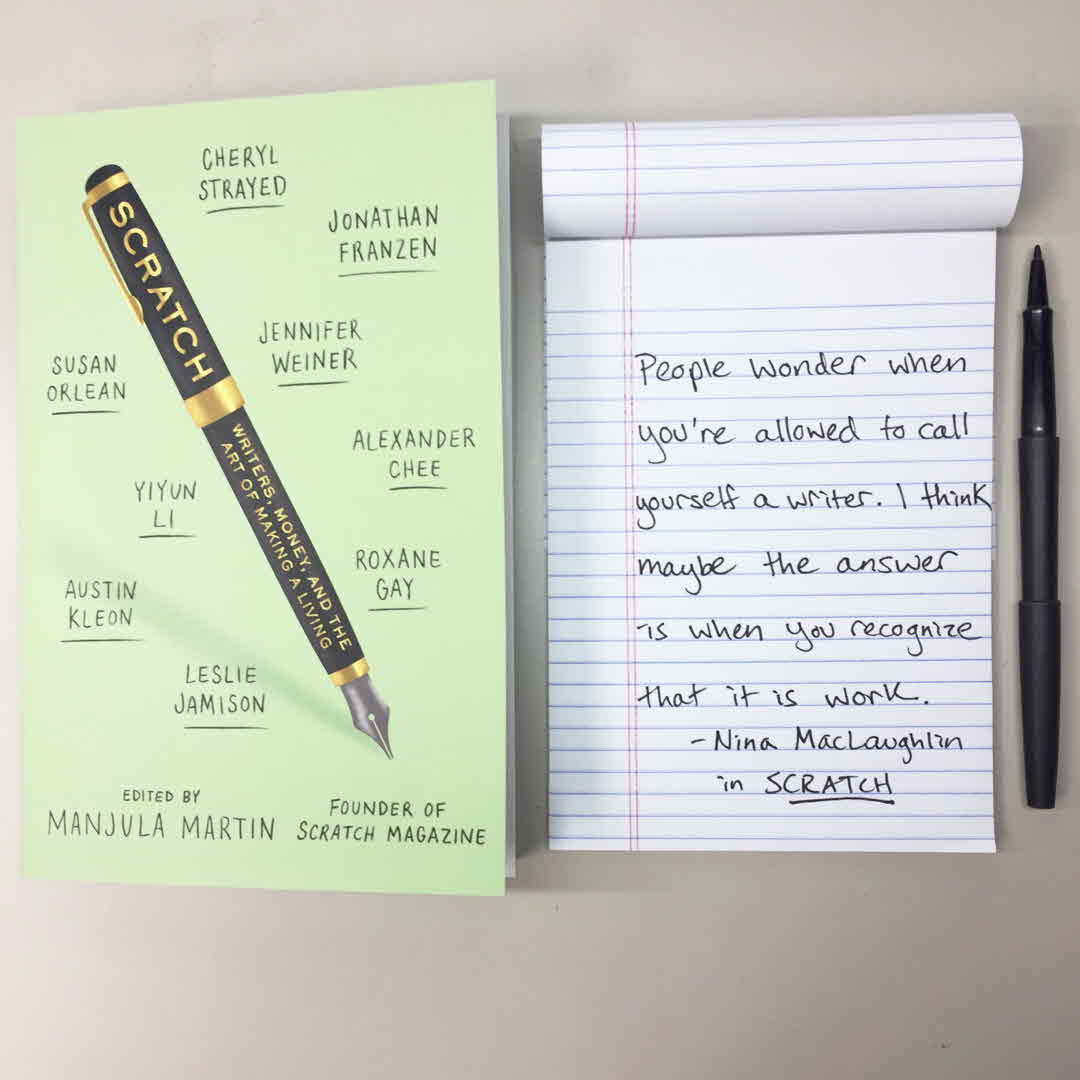 CHERYL
STRAYED
JONATHAN
FRANZEN
SCRATCH
JENNIFER
WEINER
SUSAN
ORLEAN
WRITERS, MONEY, AND THE
ART OF MAKING A LIVING
ALEXANDER
CHEE
YIYUN
LI
ROXANE
GAY
AUSTIN
KLEON
LESLIE
JAMISON
EDITED BY
MANJULA MARTIN
FOUNDER OF
SCRATCH MAGAZINE
People wonder when
you're allowed to call
yourself a writer. I think
maybe the answer
is when you recognize
that it is work.
- Nina MacLaughlin
in SCRATCH